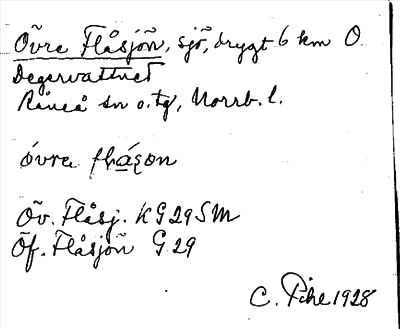 Övre Flåsjön, sjö, drygt 6 km O.
Degervattnet
Råneå sn o. tg, Norrb. l.
óvrα flạ́ʂon
Öv. Flåsj. KG29SM
Öf. Flåsjön G29
C. Pihl 1928